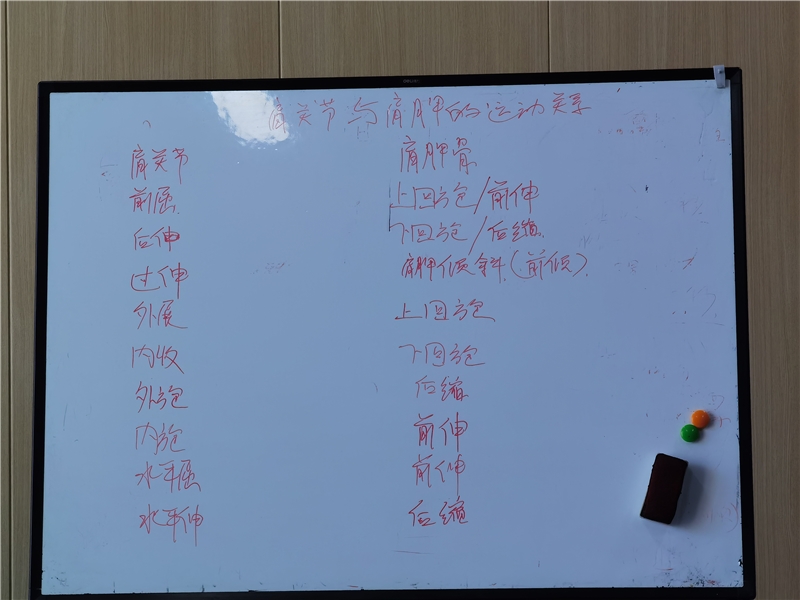 肩关节与肩胛的运动关系
肩关节 肩胛骨
前屈 上回旋/前伸
后伸 下回旋/后缩
过伸 肩胛倾斜(前倾)
外展 上回旋
内收 下回旋
外旋 后缩
内旋 前伸
水平屈 前伸
水平伸 后缩